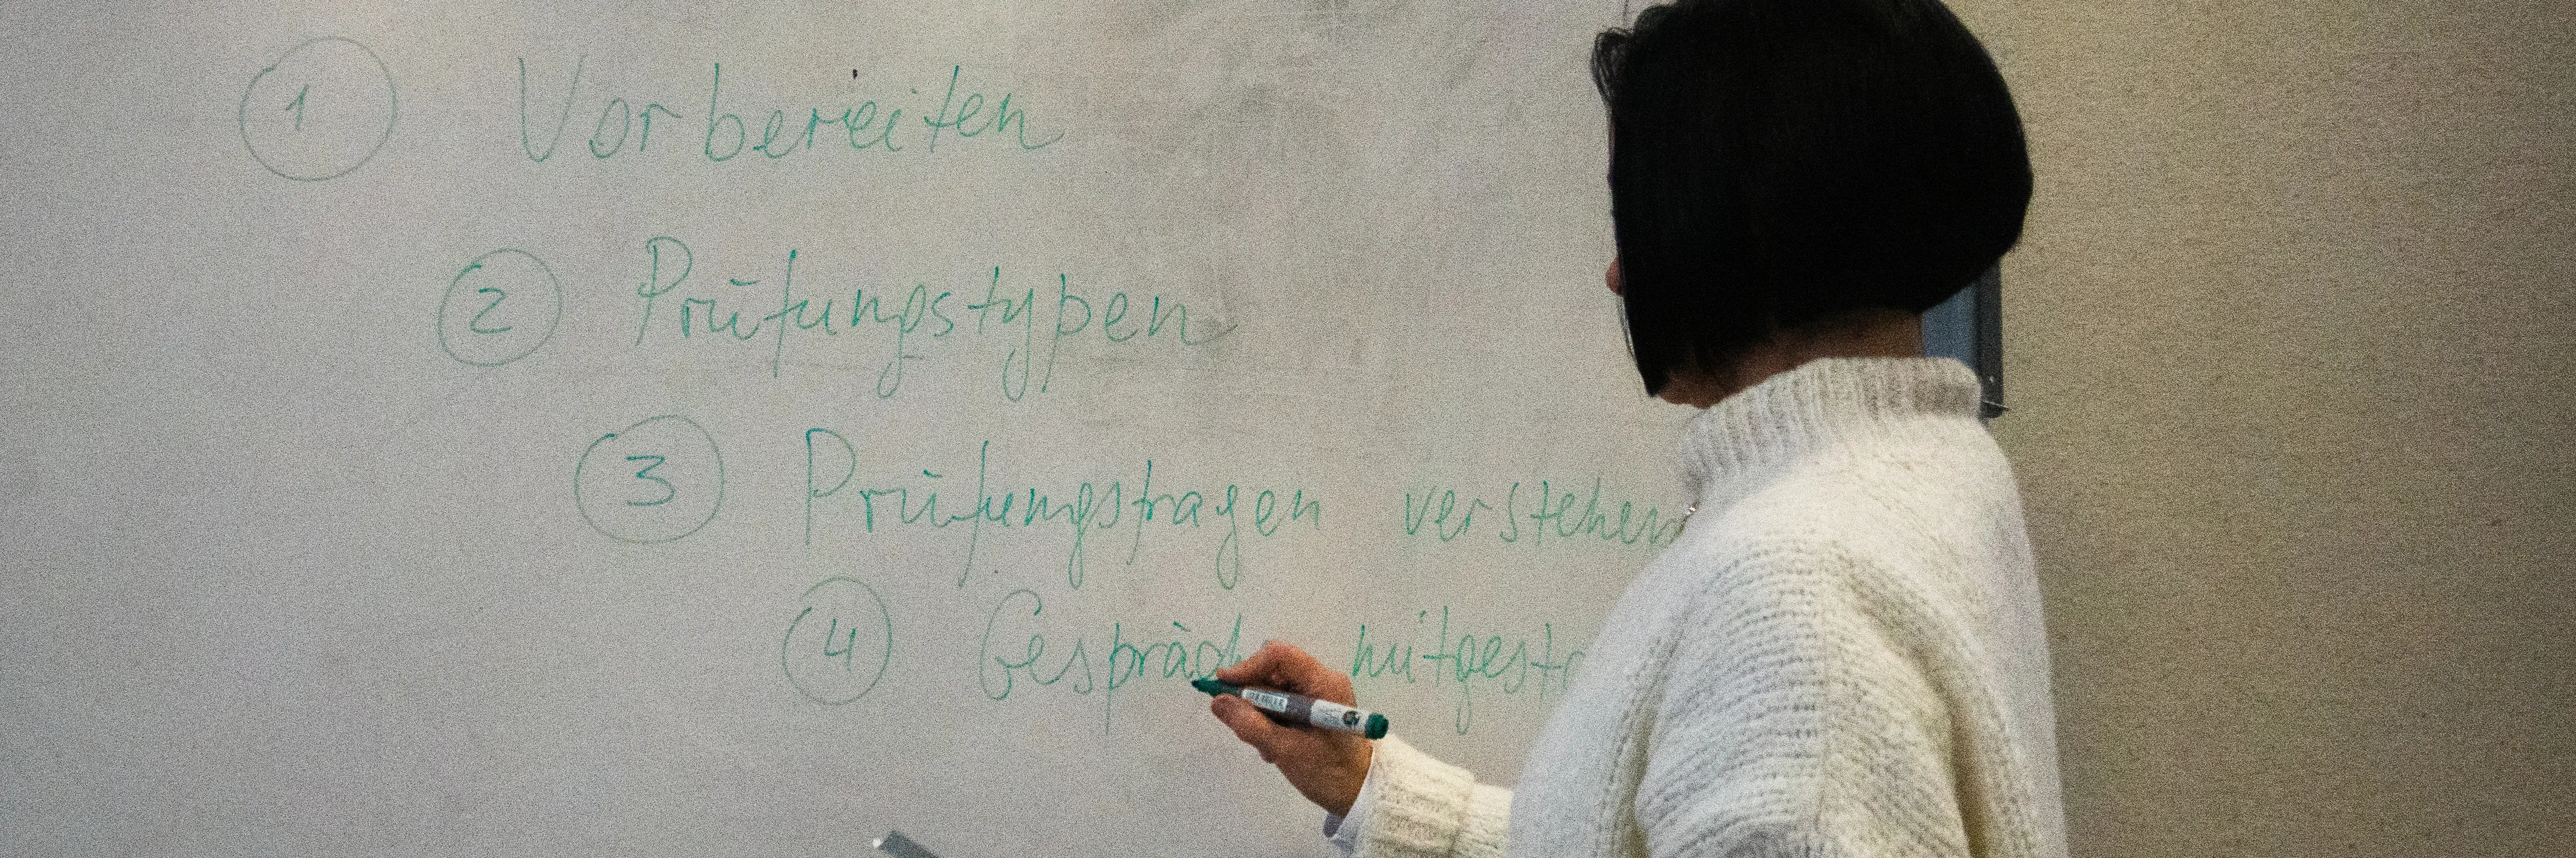 1 Vorbereiten
2 Prüfungstypen
3 Prüfungsfragen verstehen
4 Gespräch